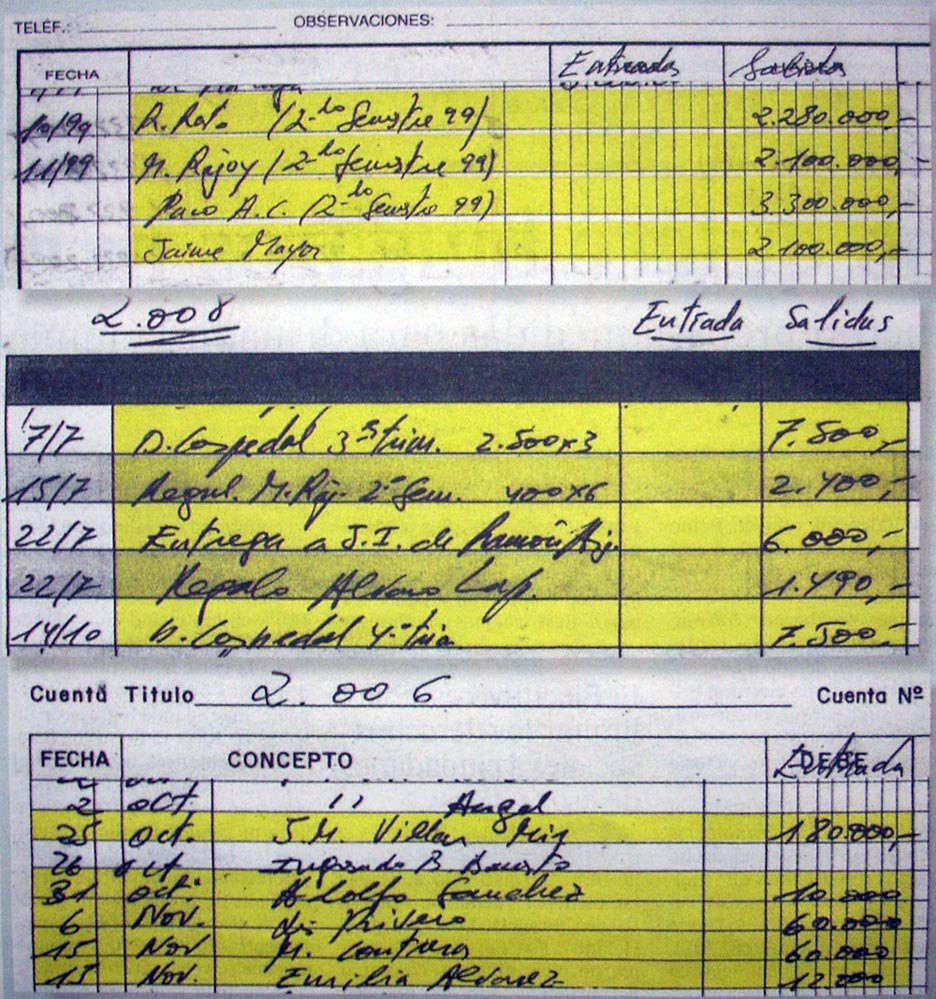 TELÉF.: OBSERVACIONES:
FECHA Entrada Salida
10/99 R. Rato (2-do Semstre 99) 2.280.000,-
11/99 M. Rajoy (2-do Semstre 99) 2.100.000,-
Paco A.C. (2-do Semstre 99) 3.300.000,-
Jaime Mayor 2.100.000,-
2.008 Entrada Salidas
7/7 D. Cospedal 3er trim. 2.500x3 7.500,-
15/7 Regul. M. Raj. 2º Sem. 400x6 2.400,-
22/7 Entrega a J.I. de 6.000,-
22/7 Regalo Alvaro Lap. 1.490,-
14/10 D. Cospedal 4º trim 7.500,-
Cuenta Titulo 2.006 Cuenta Nº
FECHA CONCEPTO DEBE Entrada
2 oct. " Angel
25 oct. J.M. Villar Mir 180.000,-
26 oct Ingresado B.
31 oct. Adolfo Sanchez 10.000
6 Nov. Rivero 60.000
15 Nov M. Contreras 60.000
15 Nov. Emilia Alvarez 12.000